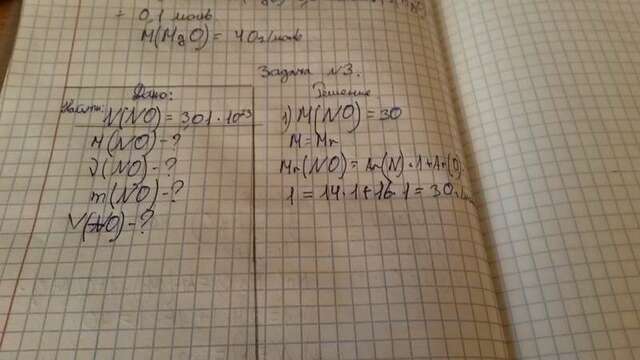 = 0,1 моль
M(MgO) = 40г/моль
Задача №3.
Дано:
Найти:
N(NO) = 3,01 · 10²³
M(NO) - ?
ν(NO) - ?
m(NO) - ?
V(NO) - ?
Решение
1) M(NO) = 30
M = Mr
Mr(NO) = Ar(N) · 1 + Ar(O) ·
1 = 14 · 1 + 16 · 1 = 30